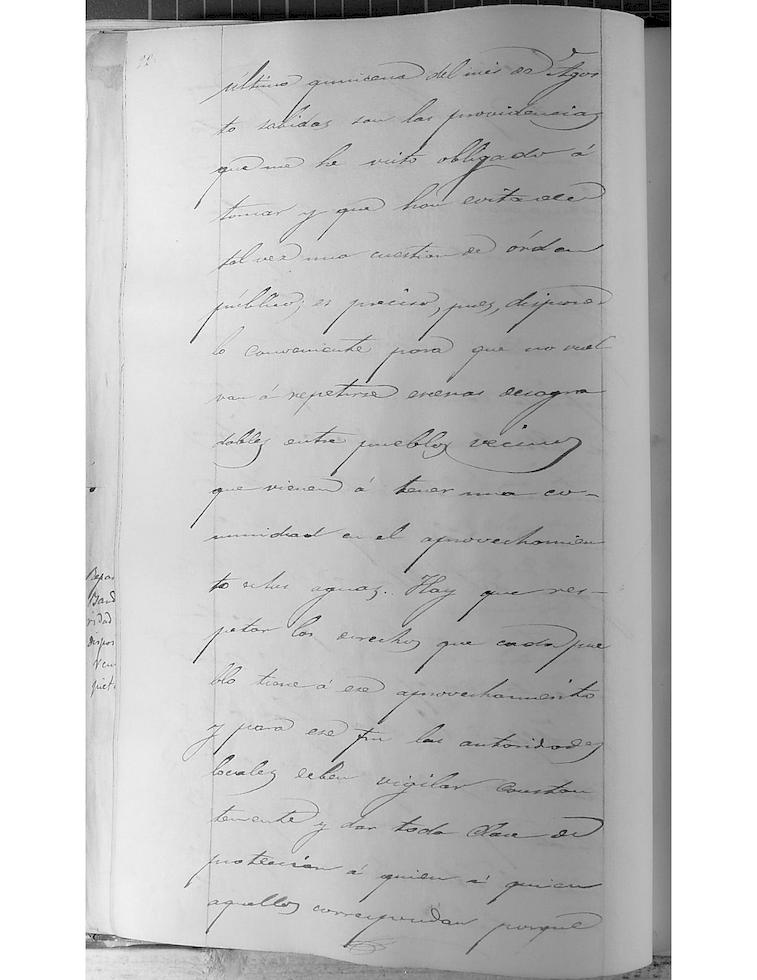 última quincena del mes de Agos
to sabidas son las providencias
que me he visto obligado á
tomar y que han evitado
tal vez una cuestion de órden
público; es preciso, pues, disponer
lo conveniente para que no vuel
van á repetirse escenas desagra
dables entre pueblos vecinos
que vienen á tener una co-
munidad en el aprovechamien
to de las aguas. Hay que res-
petar los derechos que cada pue
blo tiene á ese aprovechamiento
y para ese fin las autoridades
locales deben vigilar constan
temente y dar toda clase de
proteccion á quien á quien
aquellos correspondan porque